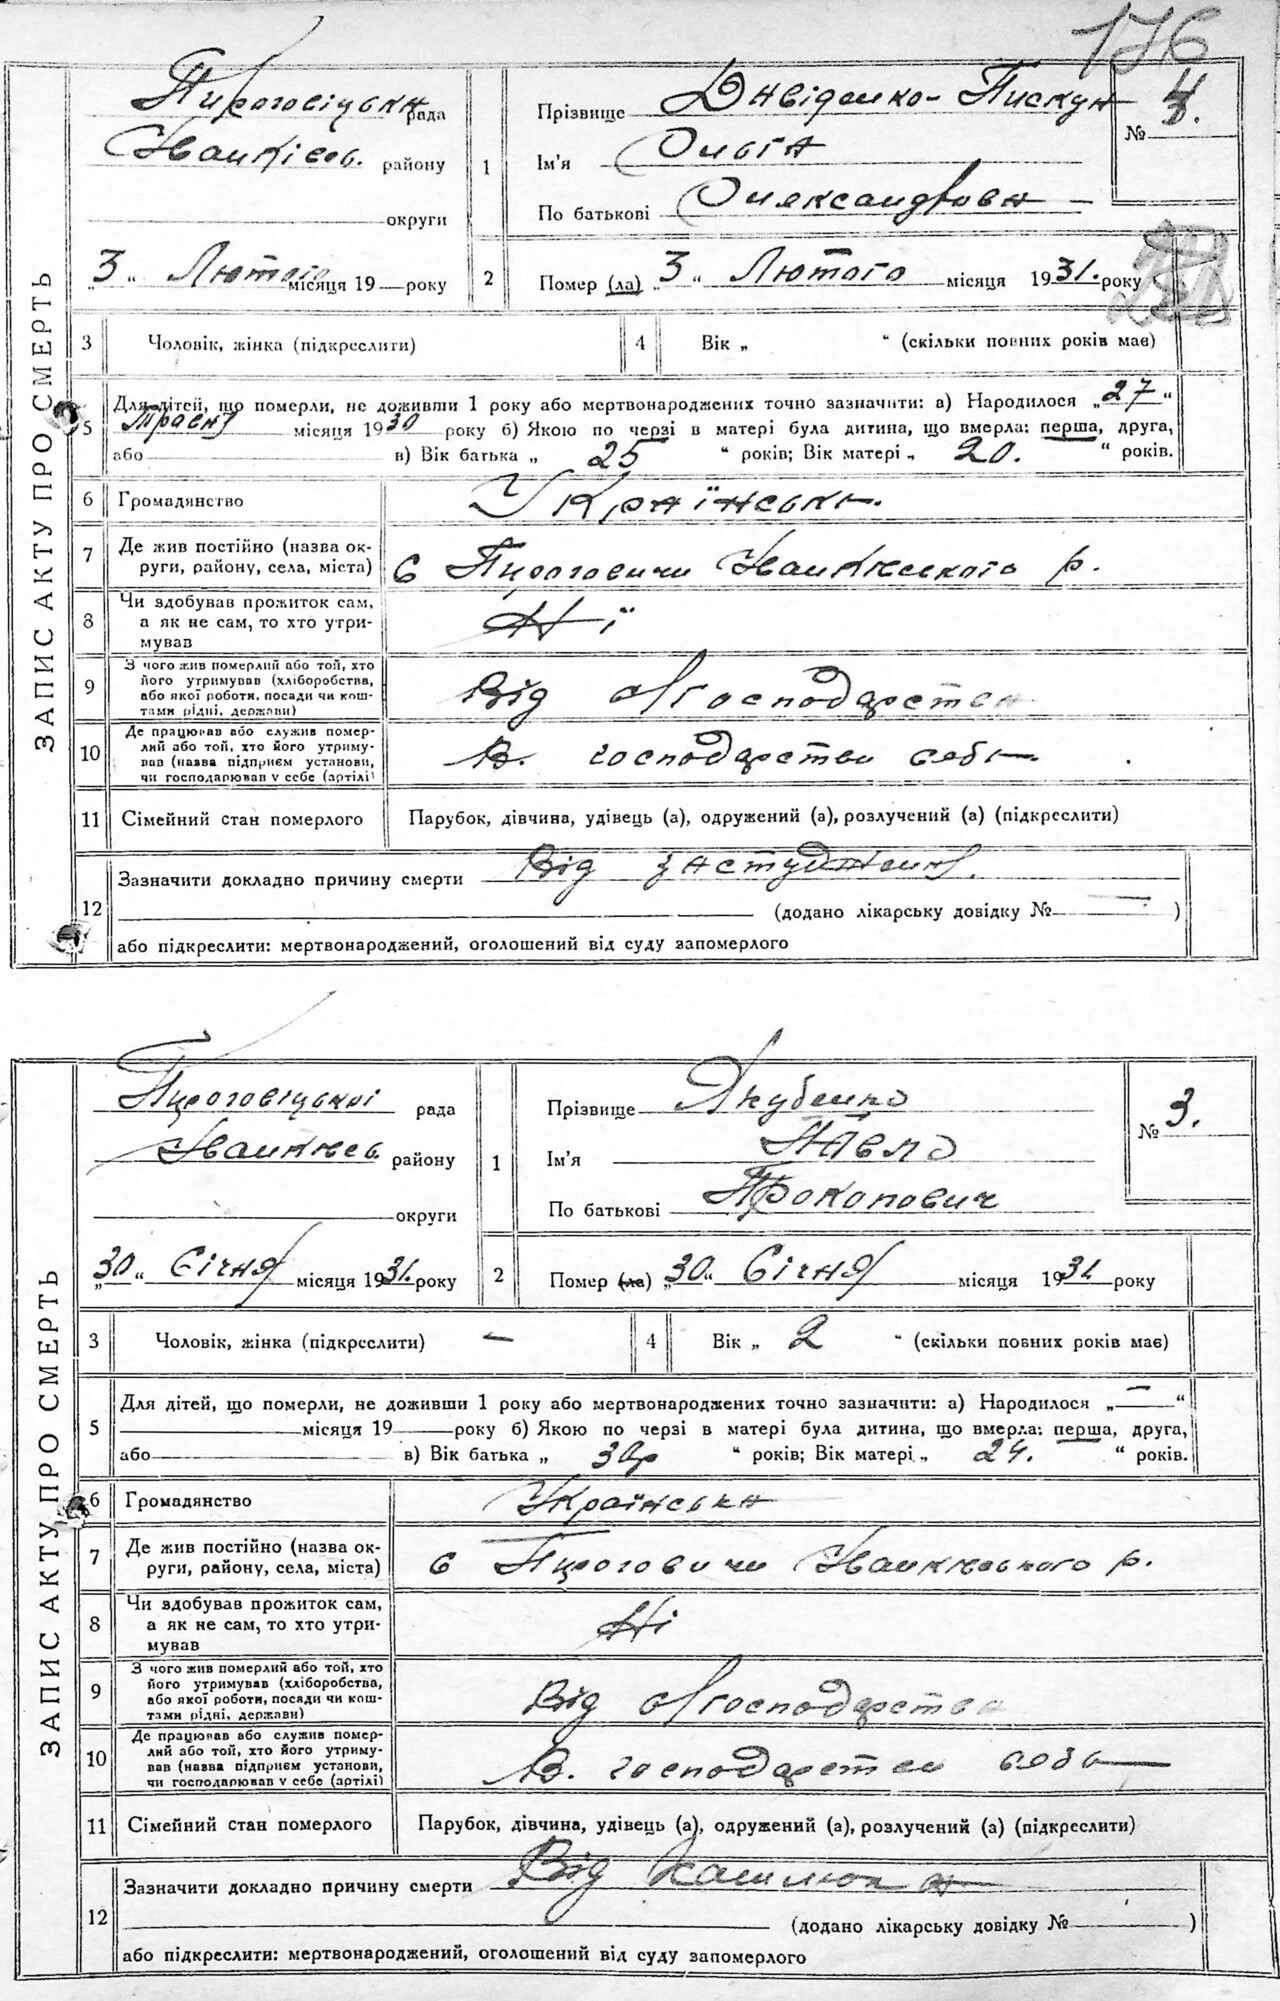 176
ЗАПИС АКТУ ПРО СМЕРТЬ
Пироговіцька рада
Іванківсь. району
округи
1
Прізвище Давіденко-Пискун
Ім'я Ольга
По батькові Олександровна
№ 4.
„3“ Лютого місяця 19 року
2
Помер (ла) „3“ Лютого місяця 1931. року
3 Чоловік, жінка (підкреслити)
4 Вік „ “ (скільки повних років має)
5 Для дітей, що померли, не доживши 1 року або мертвонароджених точно зазначити: а) Народилося „27“
Травня місяця 1930 року б) Якою по черзі в матері була дитина, що вмерла: перша, друга,
або в) Вік батька „ 25 “ років; Вік матері „ 20. “ років.
6 Громадянство Українська
7 Де жив постійно (назва ок-
руги, району, села, міста) с Пироговичи Іванківського р.
8 Чи здобував прожиток сам,
а як не сам, то хто утри-
мував Ні
9 З чого жив померлий або той, хто
його утримував (хліборобства,
або якої роботи, посади чи кош-
тами рідні, держави) Від с/господарства
10 Де працював або служив помер-
лий або той, хто його утриму-
вав (назва підприєм установи,
чи господарював у себе (артілі) В. господарстві себь
11 Сімейний стан померлого Парубок, дівчина, удівець (а), одружений (а), розлучений (а) (підкреслити)
12 Зазначити докладно причину смерти Від застуджения.
(додано лікарську довідку № — )
або підкреслити: мертвонароджений, оголошений від суду запомерлого
ЗАПИС АКТУ ПРО СМЕРТЬ
Пироговіцької рада
Іванківсь району
округи
1
Прізвище Якубенко
Ім'я Павло
По батькові Прокопович
№ 3.
„30“ Січня місяця 1931. року
2
Помер (ла) „30“ Січня місяця 1931 року
3 Чоловік, жінка (підкреслити) —
4 Вік „ 2 “ (скільки повних років має)
5 Для дітей, що померли, не доживши 1 року або мертвонароджених точно зазначити: а) Народилося „—“
місяця 19 року б) Якою по черзі в матері була дитина, що вмерла: перша, друга,
або в) Вік батька „ 30р “ років; Вік матері „ 24. “ років.
6 Громадянство Українська
7 Де жив постійно (назва ок-
руги, району, села, міста) с Пироговичи Іванківського р.
8 Чи здобував прожиток сам,
а як не сам, то хто утри-
мував Ні
9 З чого жив померлий або той, хто
його утримував (хліборобства,
або якої роботи, посади чи кош-
тами рідні, держави) Від с/господарства
10 Де працював або служив помер-
лий або той, хто його утриму-
вав (назва підприєм установи,
чи господарював у себе (артілі) В. господарстві себь
11 Сімейний стан померлого Парубок, дівчина, удівець (а), одружений (а), розлучений (а) (підкреслити)
12 Зазначити докладно причину смерти Від Кашлюка
(додано лікарську довідку № )
або підкреслити: мертвонароджений, оголошений від суду запомерлого